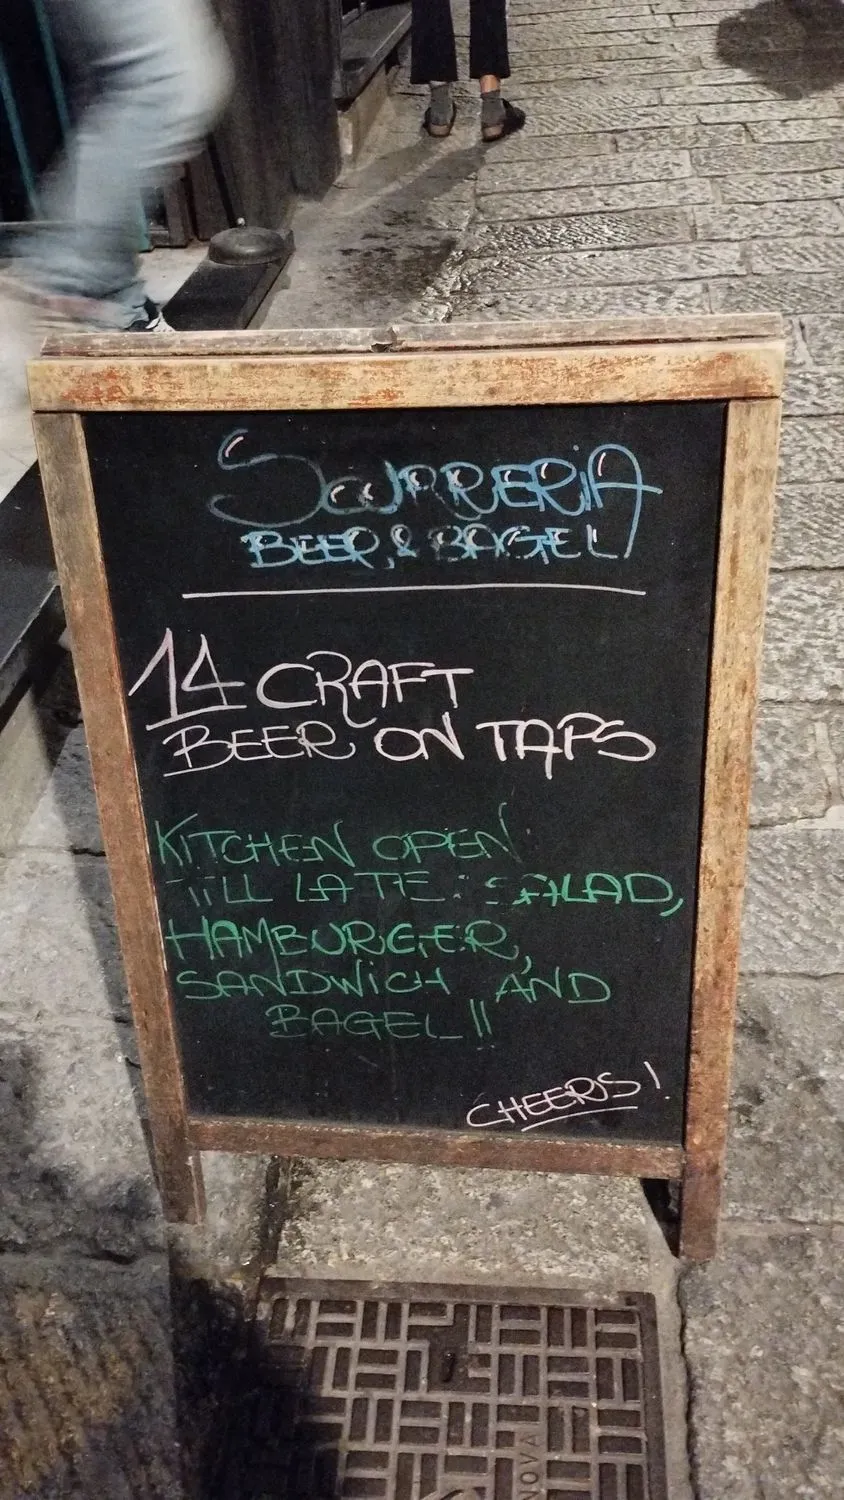 ScurreriA
BEER & BAGEL
14 CRAFT
BEER ON TAPS
KITCHEN OPEN
TILL LATE: SALAD,
HAMBURGER,
SANDWiCH AND
BAGEL!!
CHEERS!
NOVA